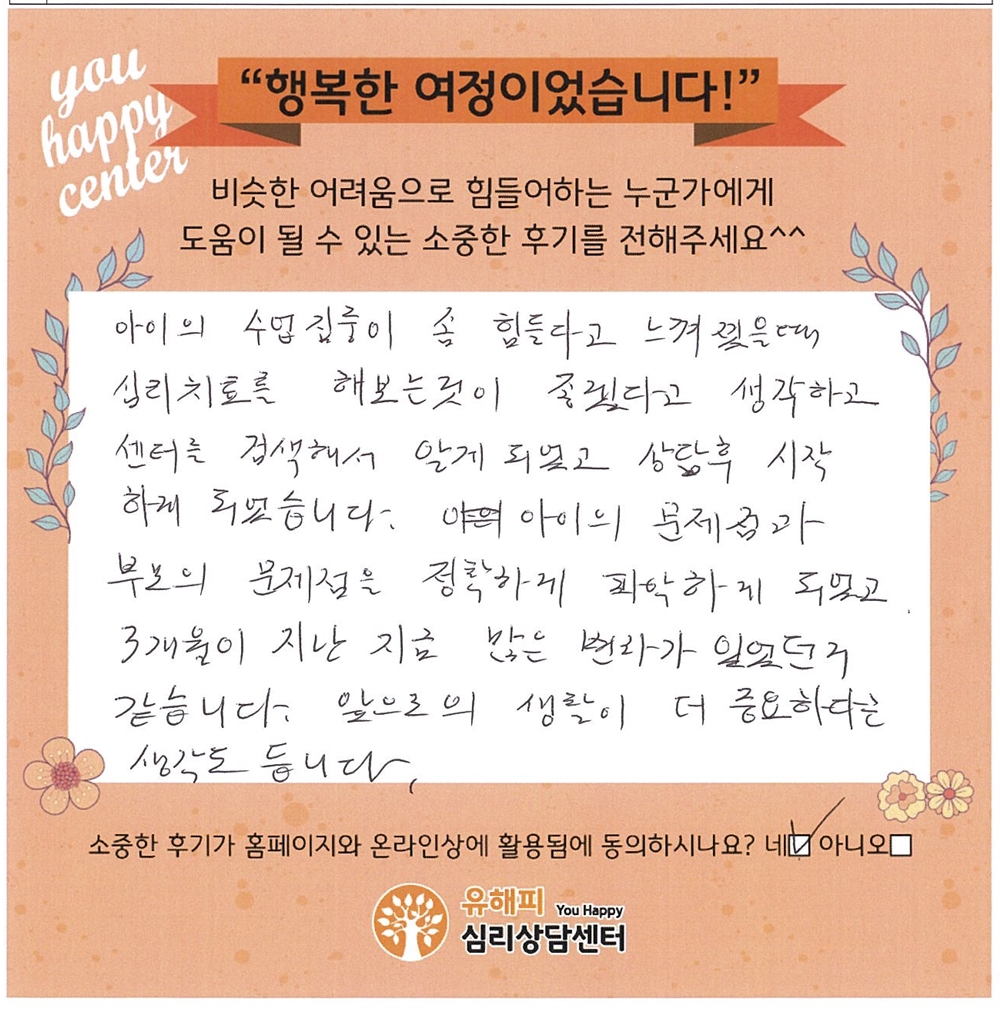 you
happy
center
“행복한 여정이었습니다!”
비슷한 어려움으로 힘들어하는 누군가에게
도움이 될 수 있는 소중한 후기를 전해주세요^^
아이의 수업집중이 좀 힘들다고 느껴졌을때
심리치료를 해보는것이 좋겠다고 생각하고
센터를 검색해서 알게 되었고 상담후 시작
하게 되었습니다. 아이의 문제점과
부모의 문제점을 정확하게 파악하게 되었고
3개월이 지난 지금 많은 변화가 있었던거
같습니다. 앞으로의 생활이 더 중요하다는
생각도 듭니다.
소중한 후기가 홈페이지와 온라인상에 활용됨에 동의하시나요? 네☑ 아니오□
유해피 You Happy
심리상담센터